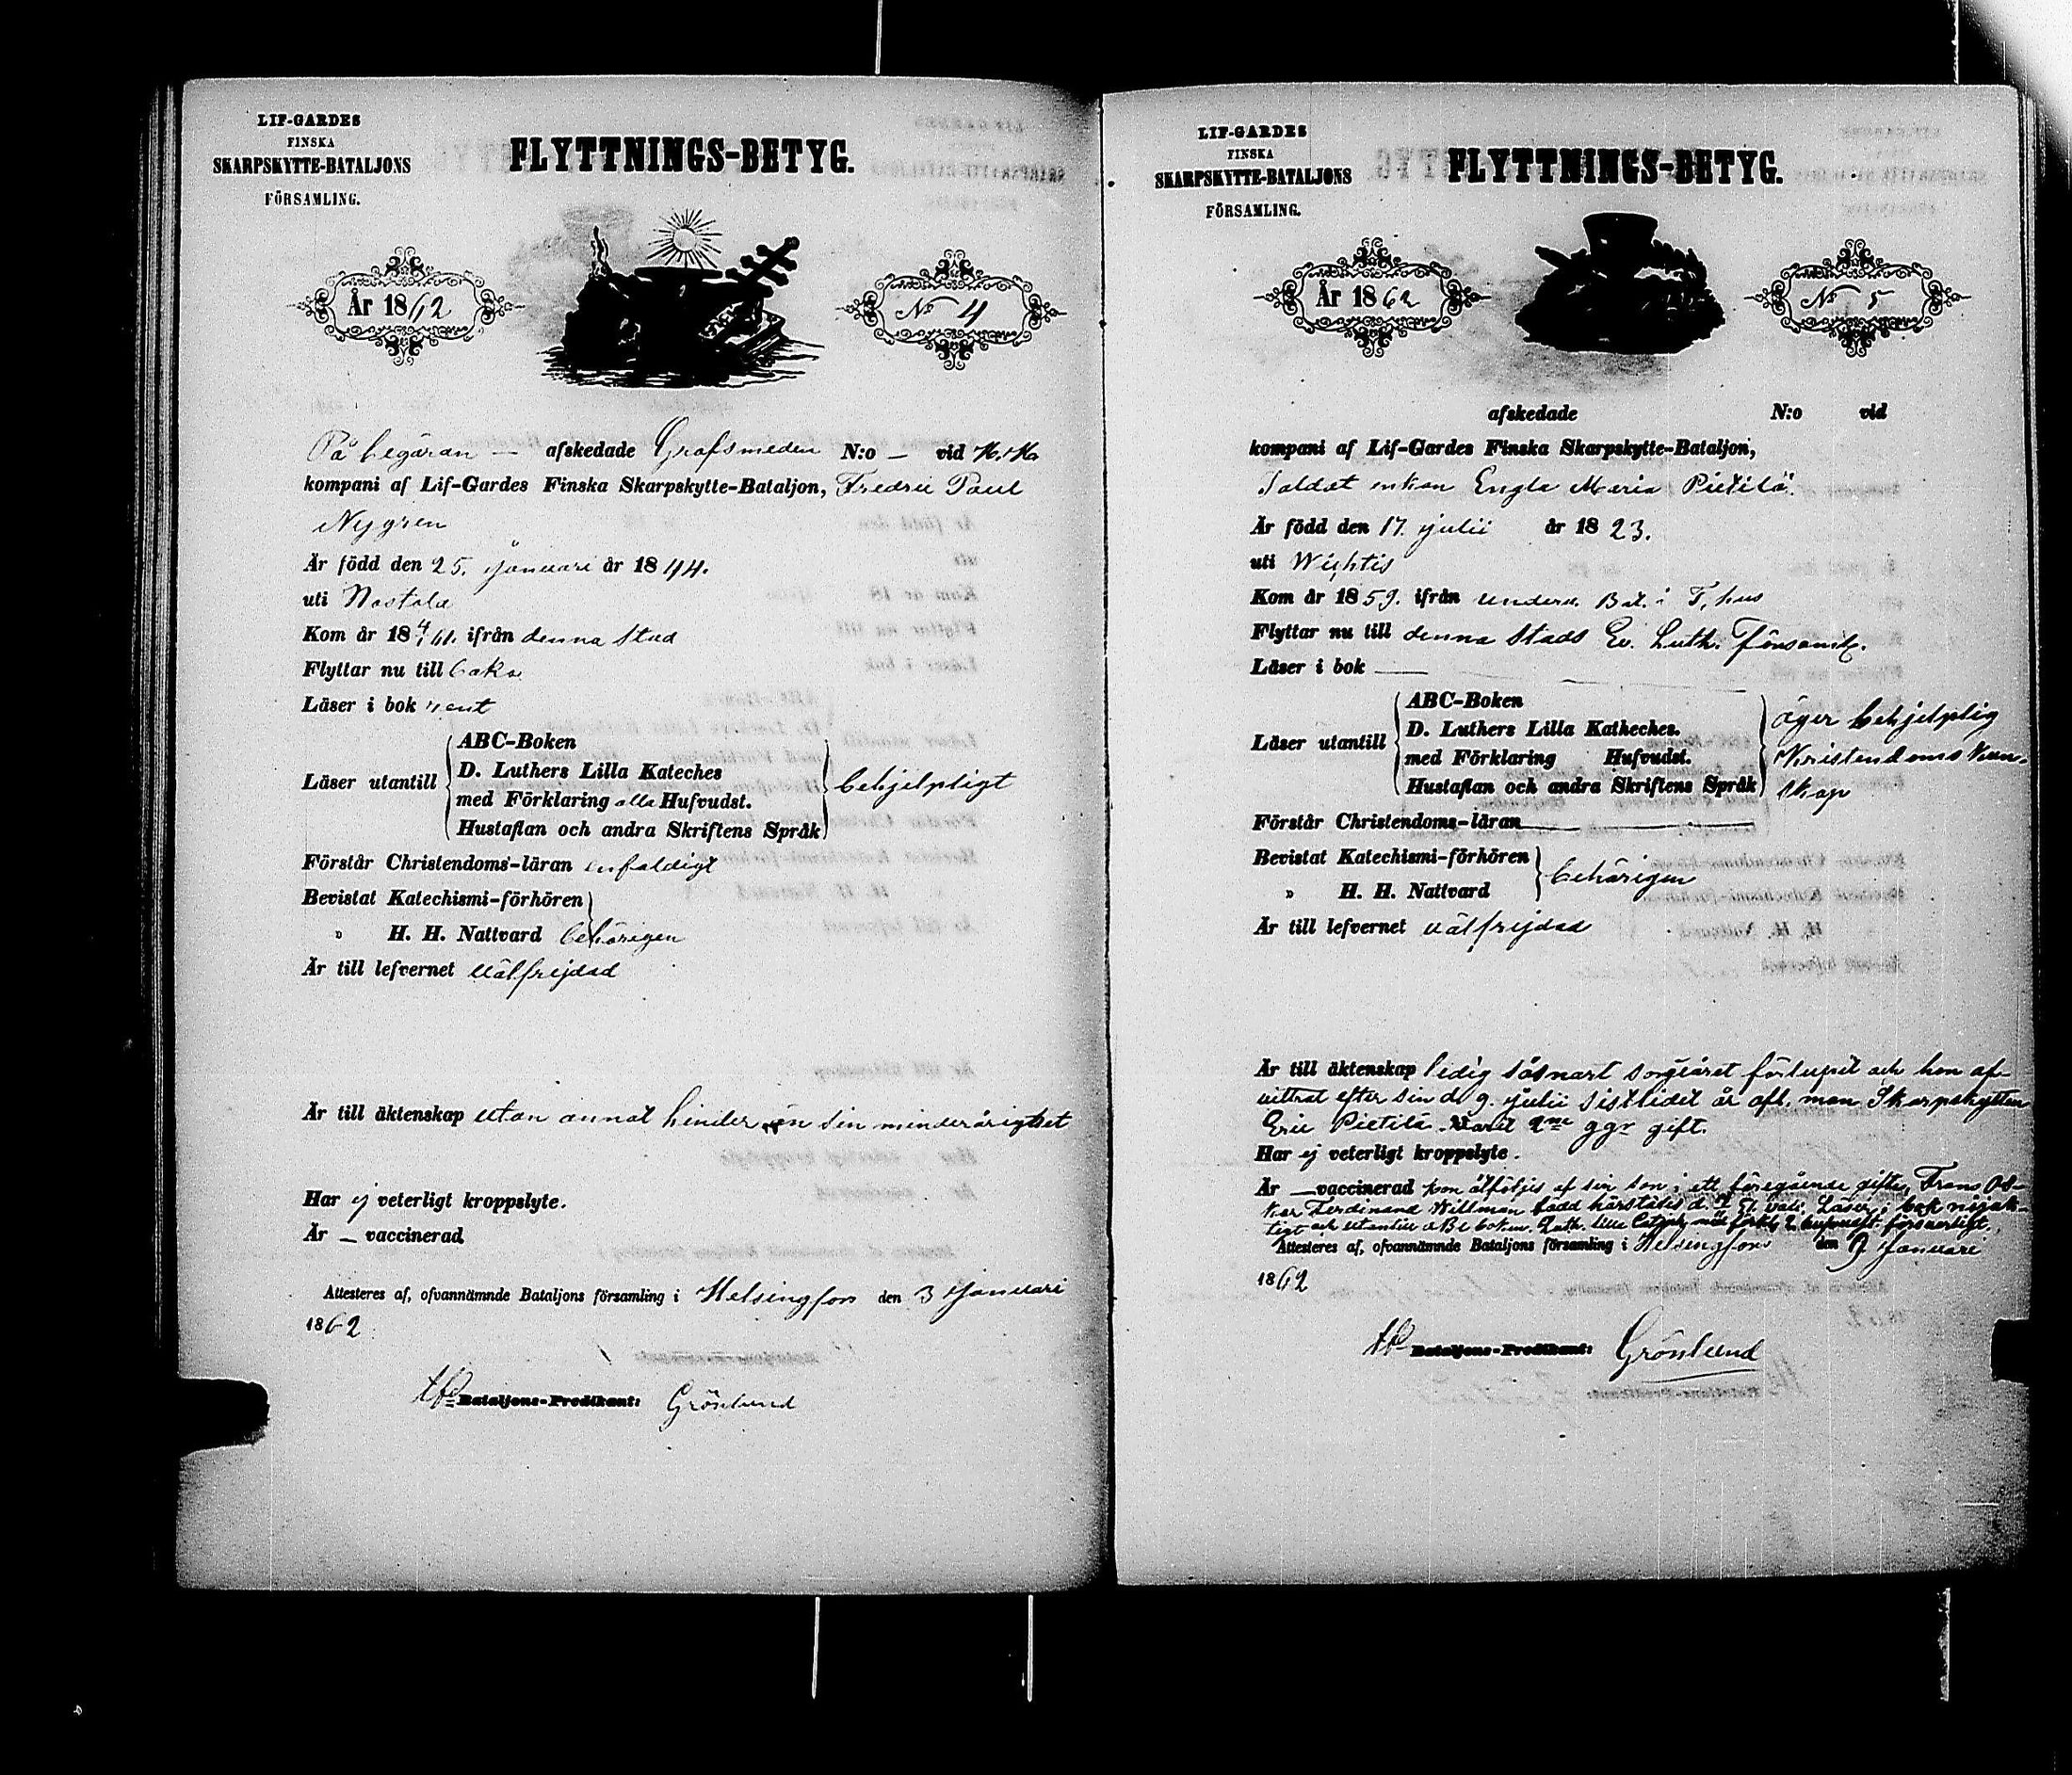 LIF-GARDES
FINSKA
SKARPSKYTTE-BATALJONS
FÖRSAMLING.
FLYTTNINGS-BETYG.
År 1862
No 4
På begäran — afskedade Grofsmeden N:o — vid
kompani af Lif-Gardes Finska Skarpskytte-Bataljon, Fredric Paul
Nygren
Är född den 25. Januari år 1844.
uti Nastola
Kom år 18 4/1 61. ifrån denna stad
Flyttar nu till baka
Läser i bok rent
Läser utantill
ABC-Boken
D. Luthers Lilla Kateches
med Förklaring alla Hufvudst.
Hustaflan och andra Skriftens Språk
behjelpligt
Förstår Christendoms-läran enfaldigt
Bevistat Katechismi-förhören
" H. H. Nattvard behörigen
Är till lefvernet välfrejdad
Är till äktenskap utan annat hinder än sin minderårighet
Har ej veterligt kroppslyte.
Är — vaccinerad
Attesteres af, ofvannämnde Bataljons församling i Helsingfors den 3 Januari
1862
Bataljons-Predikant: Grönlund
LIF-GARDES
FINSKA
SKARPSKYTTE-BATALJONS
FÖRSAMLING.
FLYTTNINGS-BETYG.
År 1862
No 5
afskedade N:o vid
kompani af Lif-Gardes Finska Skarpskytte-Bataljon,
Soldat enkan Engla Maria Pietilä.
Är född den 17. Julii år 1823.
uti Wichtis
Kom år 1859. ifrån Bat. i T,hus
Flyttar nu till denna stads Ev. Luth. Församl.
Läser i bok —
Läser utantill
ABC-Boken
D. Luthers Lilla Katheches.
med Förklaring Hufvudst.
Hustaflan och andra Skriftens Språk
äger behjelplig
Kristendoms kun-
skap
Förstår Christendoms-läran —
Bevistat Katechismi-förhören
" H. H. Nattvard
behörigen
Är till lefvernet välfrejdad
Är till äktenskap ledig såsnart sorgeåret förlupit och hon af-
vittrat efter sin d. 9. Julii sistlidet år afl. man Skarpskytten
Eric Pietilä. Varit 2ne ggr gift.
Har ej veterligt kroppslyte.
Är — vaccinerad hon åtföljes af sin son i ett föregående gifte, Frans Os-
kar Ferdinand Willman född härstädes d. Läser i bok nöjak-
tigt och utantill ABC boken. Luth. lilla Catech. med förkl. 2 hufvudst. försvarligt.
Attesteres af, ofvannämnde Bataljons församling i Helsingfors den 9 Januari
1862
Bataljons-Predikant: Grönlund